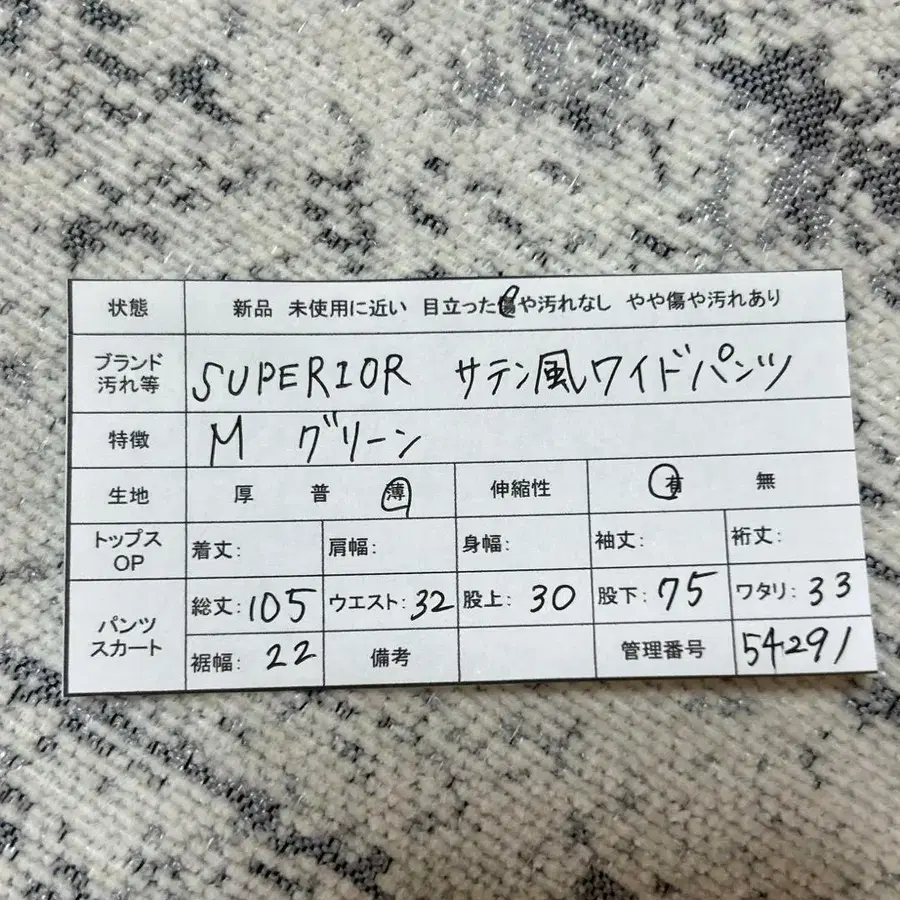 状態 新品 未使用に近い 目立った傷や汚れなし やや傷や汚れあり
ブランド
汚れ等
SUPERIOR サテン風ワイドパンツ
特徴 M グリーン
生地 厚 普 薄 伸縮性 有 無
トップス
OP
着丈: 肩幅: 身幅: 袖丈: 裄丈:
パンツ
スカート
総丈: 105 ウエスト: 32 股上: 30 股下: 75 ワタリ: 33
裾幅: 22 備考 管理番号 54291